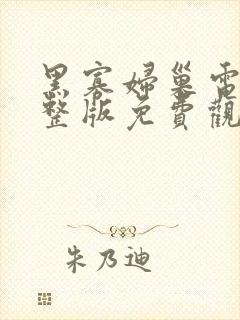 黑寡婦巢電
整版免費觀
朱乃迪